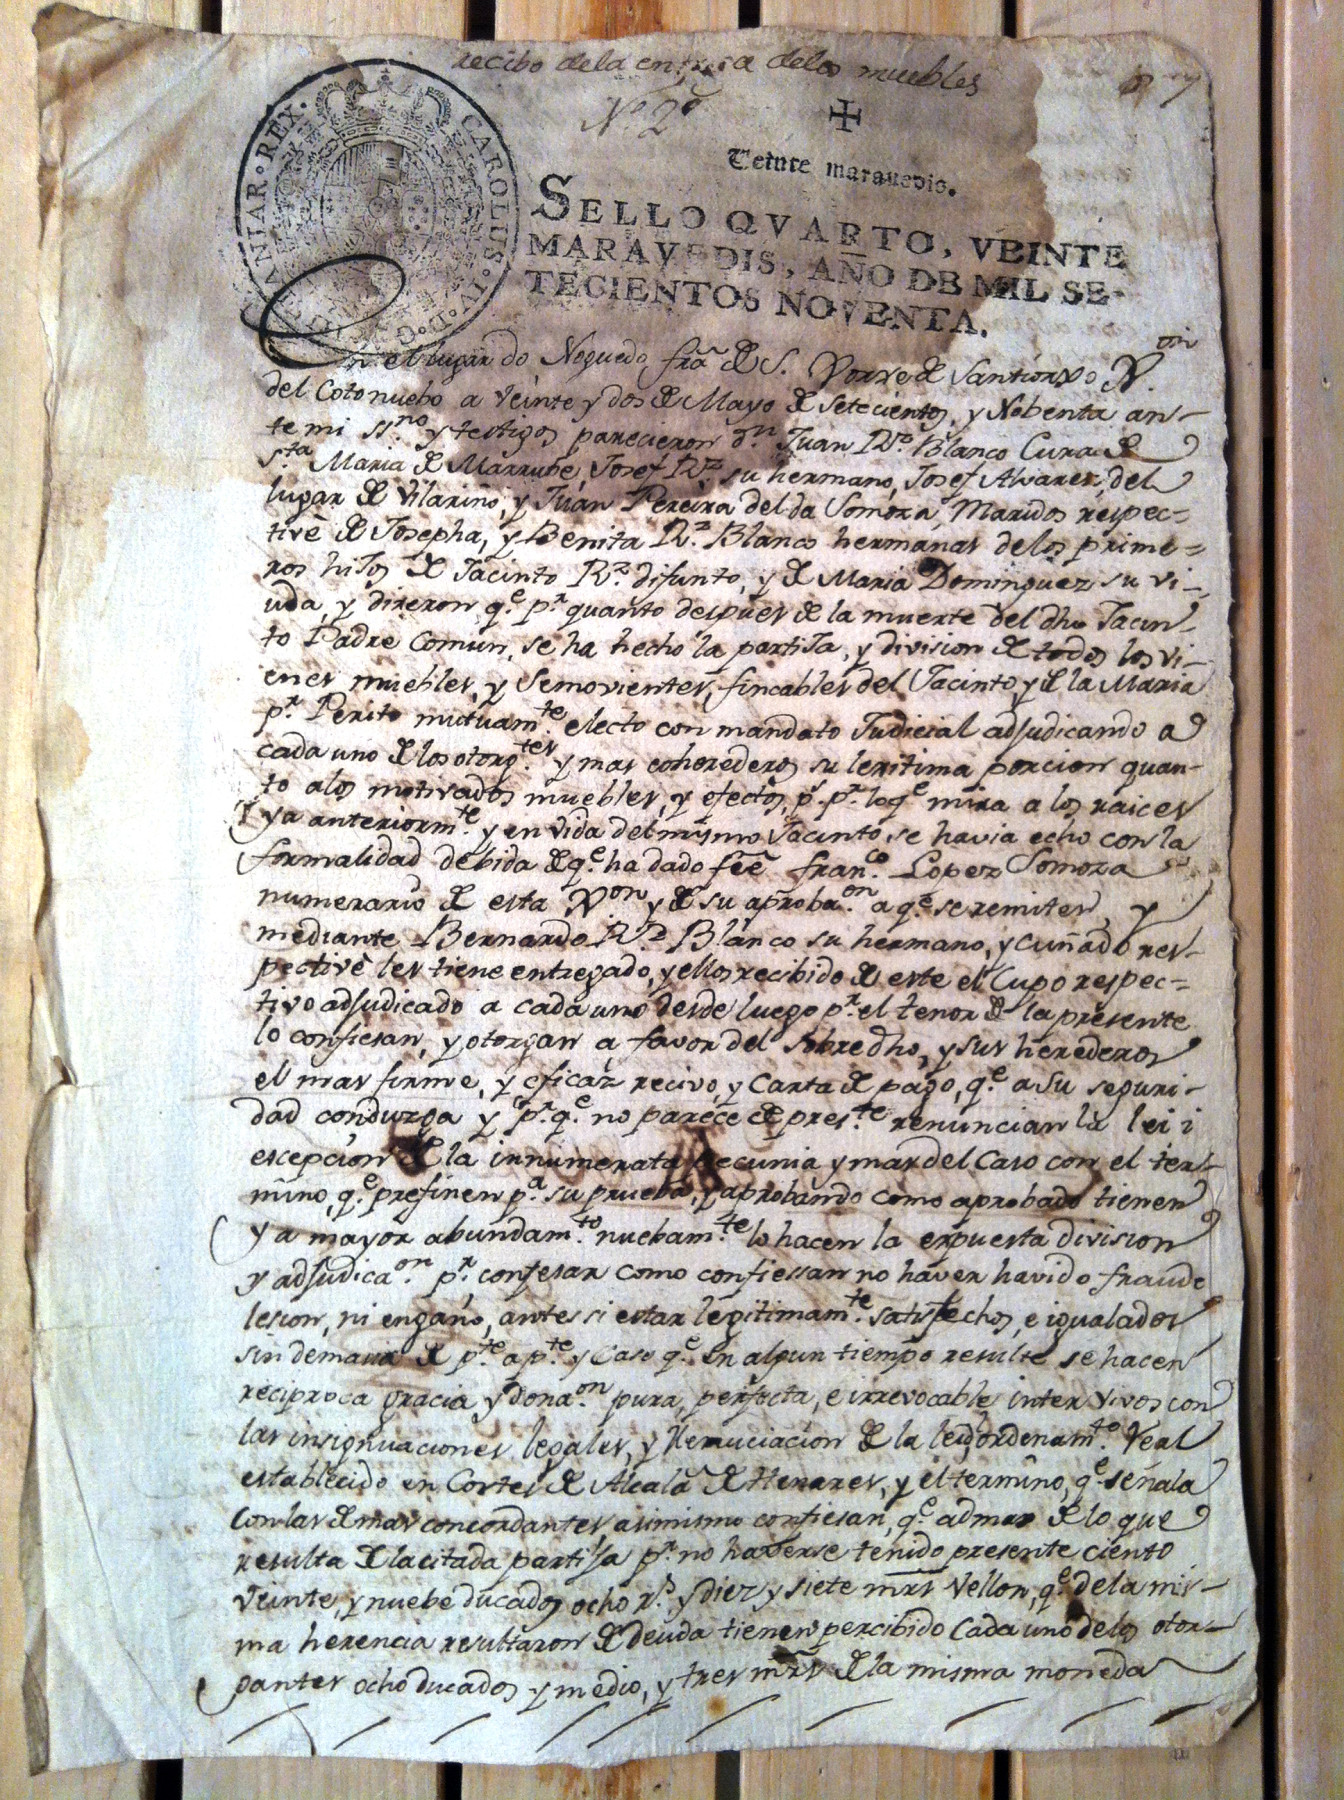 recibo dela entrega delos muebles
Nº 2º
Veinte maravedis.
SELLO QVARTO, VEINTE
MARAVEDIS, AÑO DE MIL SE-
TECIENTOS NOVENTA.
CAROLUS·IV·D·G·HISPANIAR·REX·
En el lugar do Noguedo, frã de S. Jorxe de Santiorxo Jon
del Cotonuebo a veinte y dos de Mayo de setecientos, y Nobenta an-
te mi ssno y testigos parecieron dn Juan Rs. Blanco Cura de
Sta Maria de Marrube, Josef Rz su hermano, Josef Alvarez, del
lugar de Vilariño, y Juan Pereira del da Somoza, Maridos respec-
tivè de Josepha, y Benita Rz. Blanco hermanas delos prime-
ros hijos de Jacinto Rz. difunto, y de Maria Dominguez su vi-
uda, y dixeron qe. pr. quanto despues de la muerte del dho Jacin-
to Padre comun, se ha hecho la partija, y division de todos los vi-
enes muebles, y semovientes, fincables del Jacinto, y de la Maria
pr. Perito mutuamte. electo con mandato Judicial adjudicando a
cada uno de los otorgtes. y mas coherederos su lexitima porcion quan-
to alos motivados muebles, y efectos, ps. pr. loqe mira a los raices
ya anteriormte. y en vida del mismo Jacinto se havia echo con la
formalidad debida de qe. ha dado feè franco. Lopez Somoza
numerario de esta Jon y de su aprobaon. a qe. se remiten, y
mediante Bernardo Rz Blanco su hermano, y cuñado res-
pectivè les tiene entregado, y ellos recibido de este el Cupo respec-
tivo adjudicado a cada uno desde luego pr. el tenor de la presente
lo confiesan, y otorgan a favor del sobredho, y sus herederos
el mas firme, y eficaz recivo, y Carta de pago, qe. a su seguri-
dad conduzga y pr. qe. no parece de preste. renuncian la lei i
escepcion de la innumerata pecunia y mas del caso con el ter-
mino, qe. prefinen pa. su prueba, y aprobando como aprobado tienen
y a mayor abundamto. nuebamte. lo hacen la expuesta division
y adjudicaon. pr. confesar como confiessan no haver havido fraude
lesion, ni engaño, antes si estar legitimamte. satisfechos, e igualados
sin demasia de pte. a pte. y Caso qe. en algun tiempo resulte se hacen
reciproca gracia y donaon. pura, perfecta, e irrevocable inter vivos con
las insignuaciones legales, y Renuciacion de la lei de ordenamto. Real
establecido en Cortes de Alcalà de Henares, y el termino, qe. señala
con las demas concordantes, asimismo confiesan, qe. admas de lo que
resulta de la citada partija pr. no haverse tenido presente ciento
veinte, y nuebe ducados ocho rs. y diez y siete mrs vellon, qe. de la mis-
ma herencia resultaron de deuda tienen percibido Cada uno delos otor-
gantes ocho ducados y medio, y tres mrs de la misma moneda